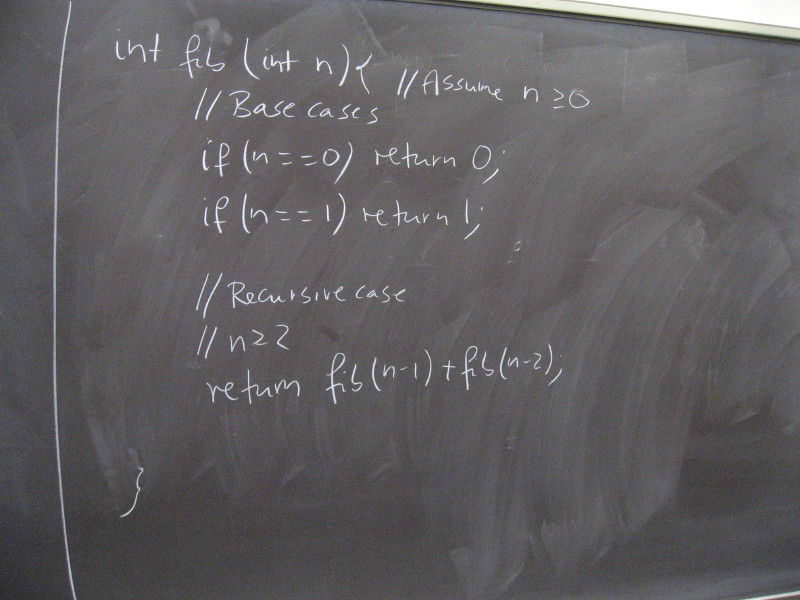 int fib (int n){ //Assume n ≥ 0
//Base cases
if (n==0) return 0;
if (n==1) return 1;
//Recursive case
//n≥2
return fib(n-1)+fib(n-2);
}